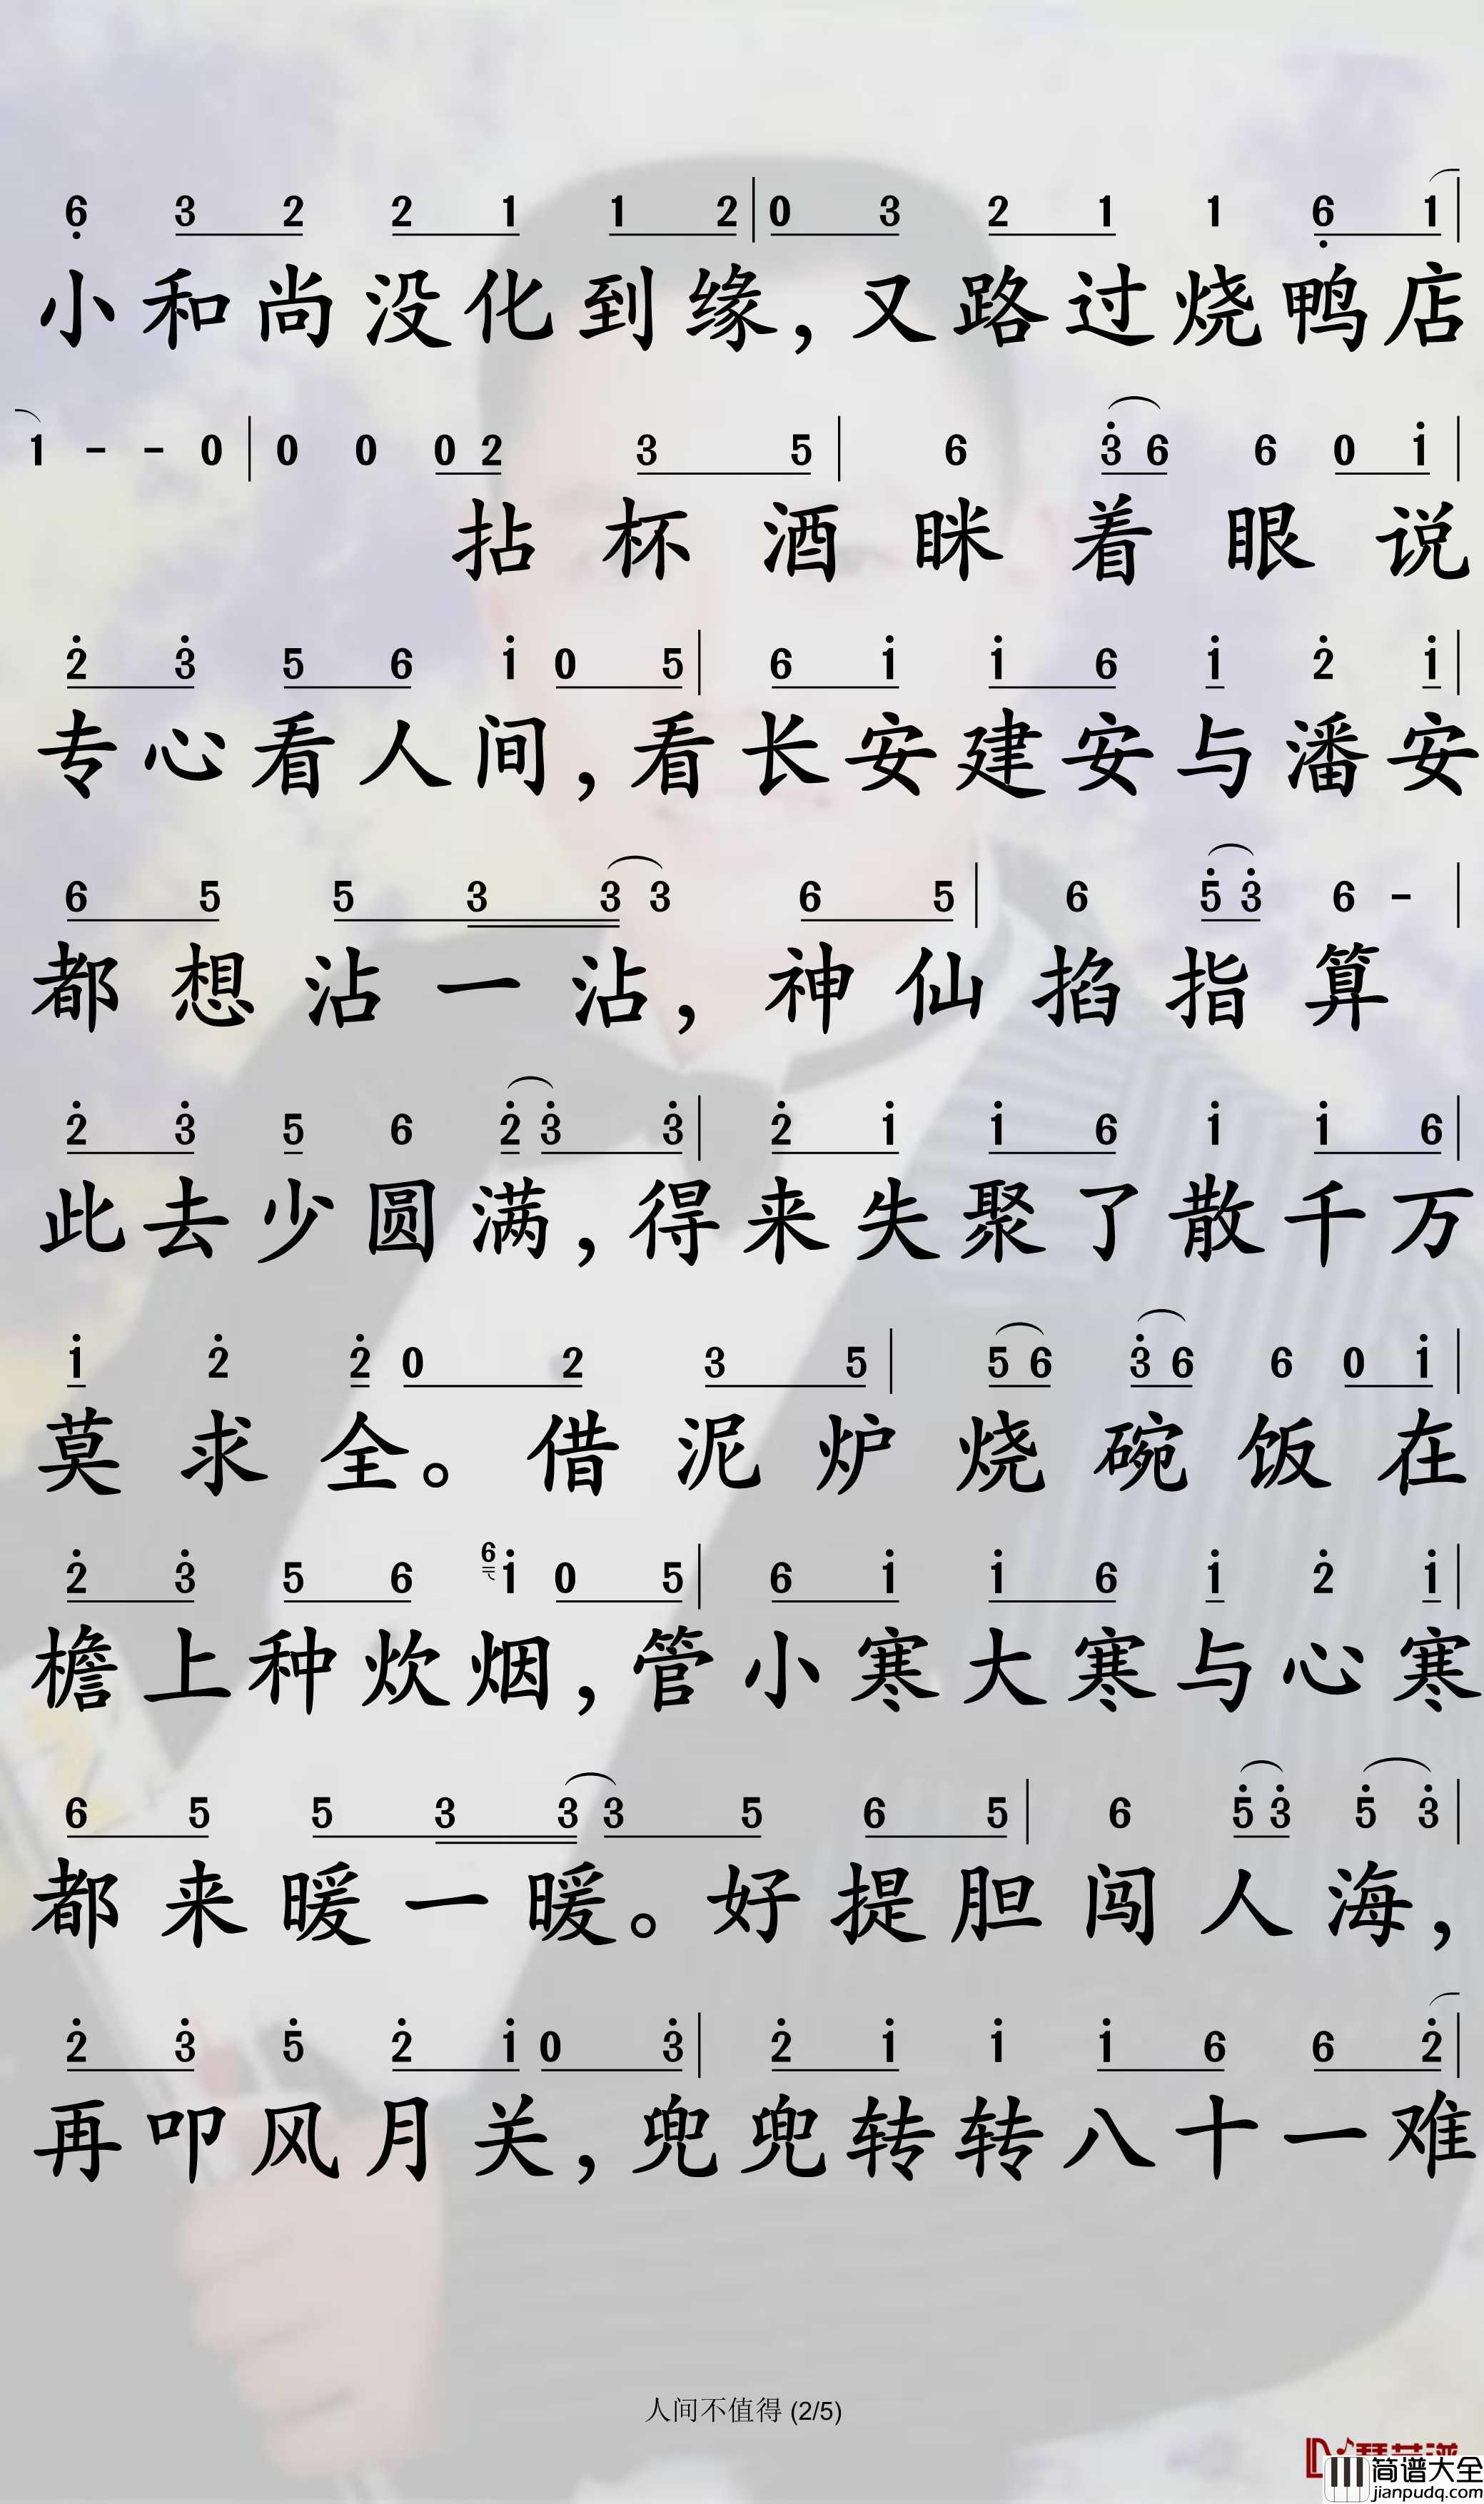 6 3 2 2 1 1 2 | 0 3 2 1 1 6 1 |
小和尚没化到缘，又路过烧鸭店
1 - - 0 | 0 0 0 2 3 5 | 6 3 6 6 0 1 |
拈杯酒眯着眼说
2 3 5 6 1 0 5 | 6 1 1 6 1 2 1 |
专心看人间，看长安建安与潘安
6 5 5 3 3 3 6 5 | 6 5 3 6 - |
都想沾一沾，神仙掐指算
2 3 5 6 2 3 3 | 2 1 1 6 1 1 6 |
此去少圆满，得来失聚了散千万
1 2 2 0 2 3 5 | 5 6 3 6 6 0 1 |
莫求全。借泥炉烧碗饭在
2 3 5 6 6 1 0 5 | 6 1 1 6 1 2 1 |
檐上种炊烟，管小寒大寒与心寒
6 5 5 3 3 3 5 6 5 | 6 5 3 5 3 |
都来暖一暖。好提胆闯人海，
2 3 5 2 1 0 3 | 2 1 1 1 6 6 2 |
再叩风月关，兜兜转转八十一难
人间不值得 (2/5)
简谱大全
jianpudq.com